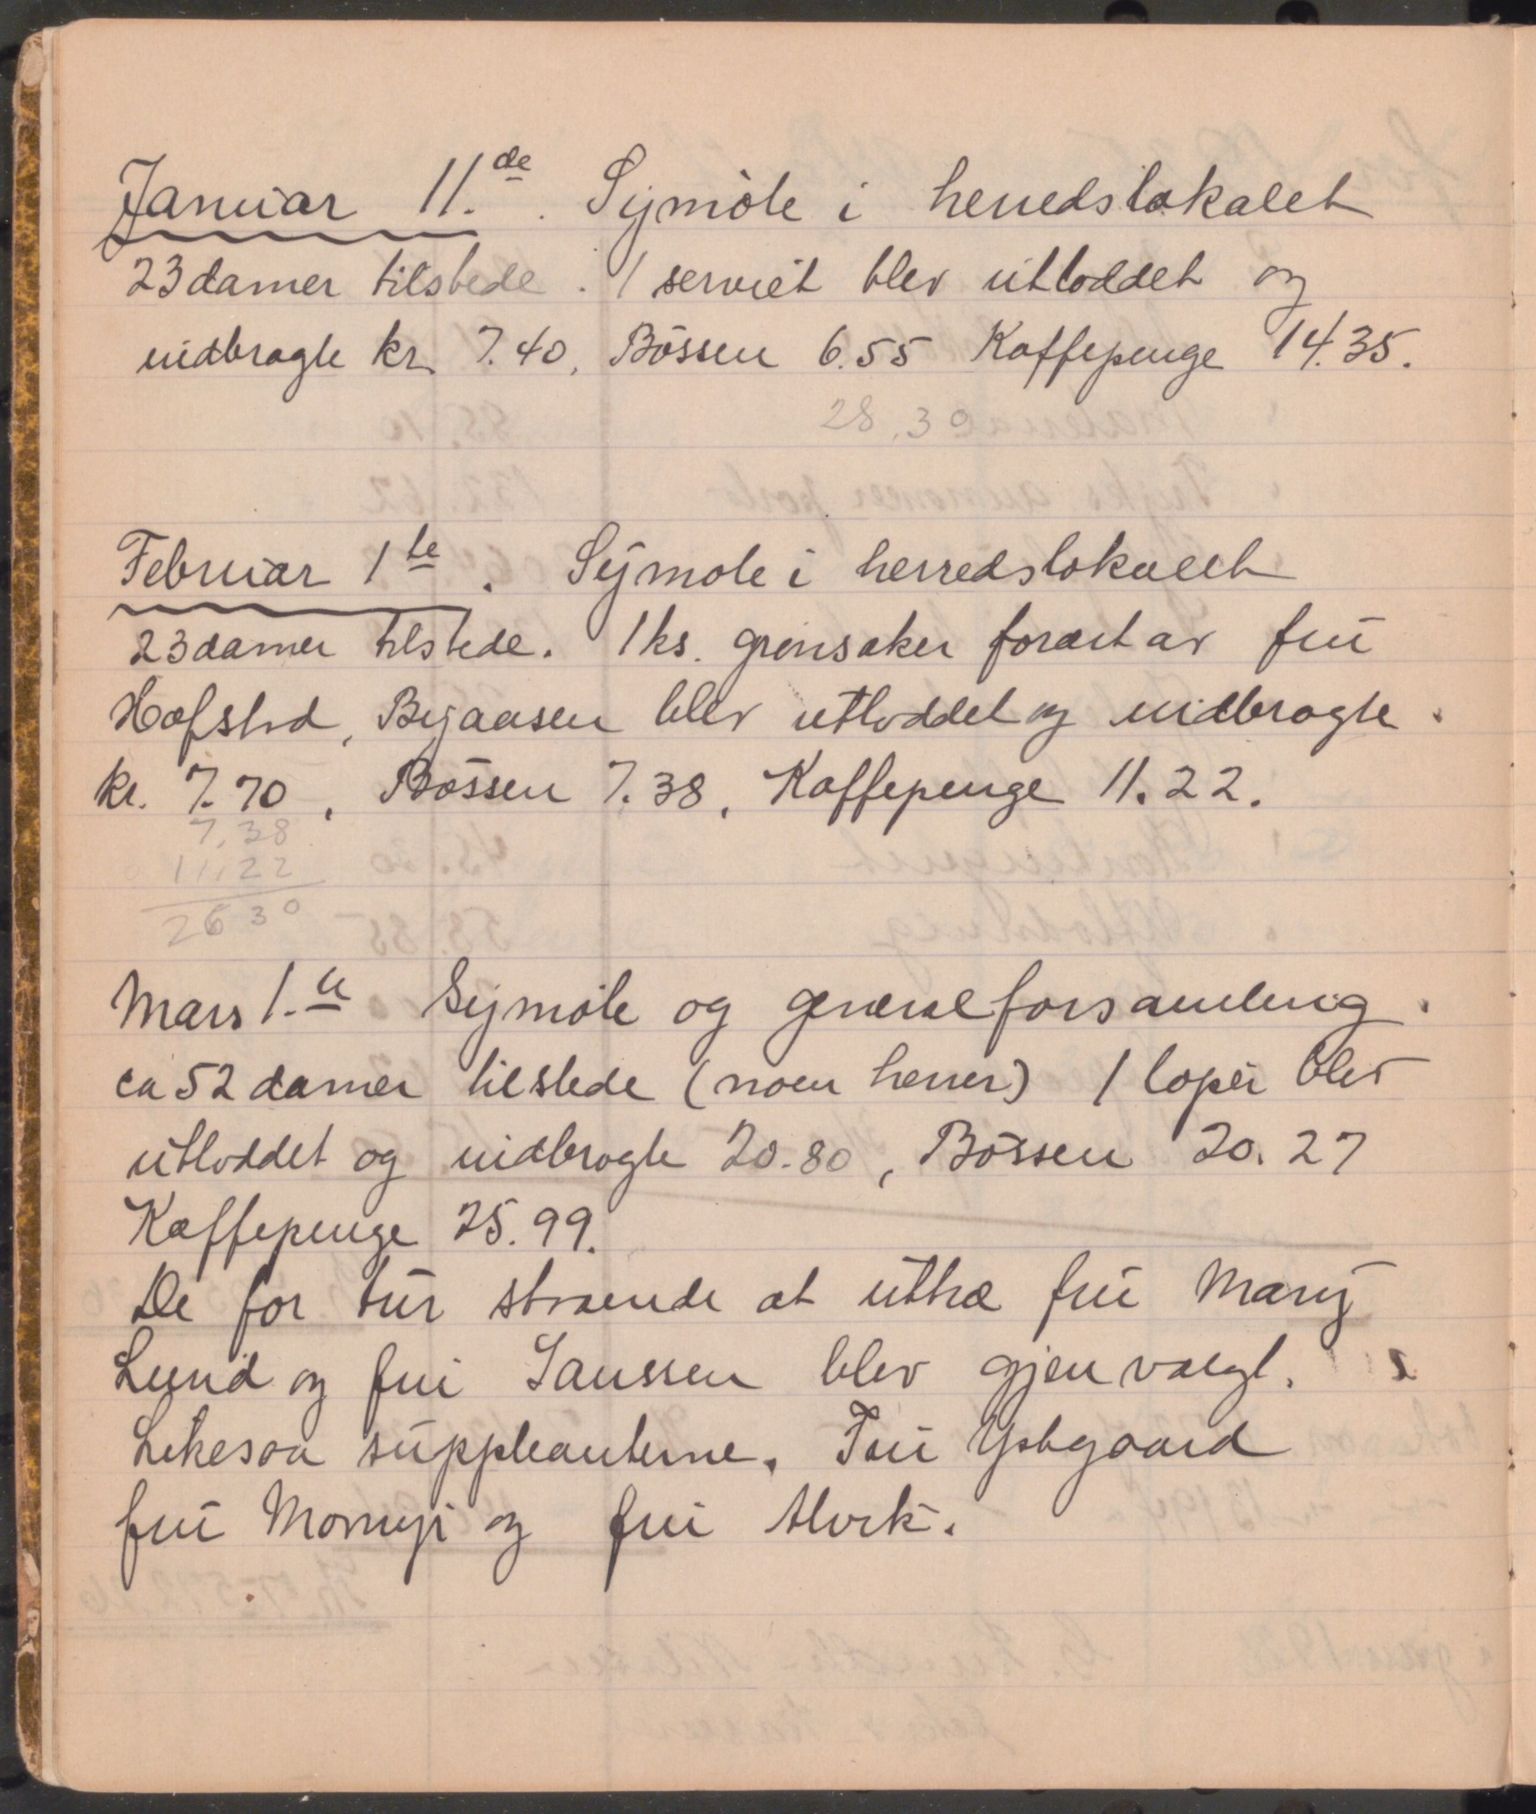 Januar 11.de. Symöte i herredslokalet
23 damer tilstede. 1 serviet blev utloddet og
indbragte kr. 7.40, Bössen 6.55 Kaffepenge 14.35.
28,30
Februar 1te. Symöte i herredslokalet
23 damer tilstede. 1 ks. grönsaker forært av fru
Hofstad, Byaasen blev utloddet og indbragte
kr. 7.70, Bössen 7.38, Kaffepenge 11.22.
7,38
11,22
26 30
Mars 1.te Symöte og generalforsamling.
ca 52 damer tilstede (noen herrer) 1 loper blev
utloddet og indbragte 20.80, Bössen 20.27
Kaffepenge 25.99.
De for tur staaende at uttræ fru Mary
Lund og fru Janssen blev gjenvalgt.
Likesaa suppleanterne. Fru Ystgaard
fru og fru Alvik.